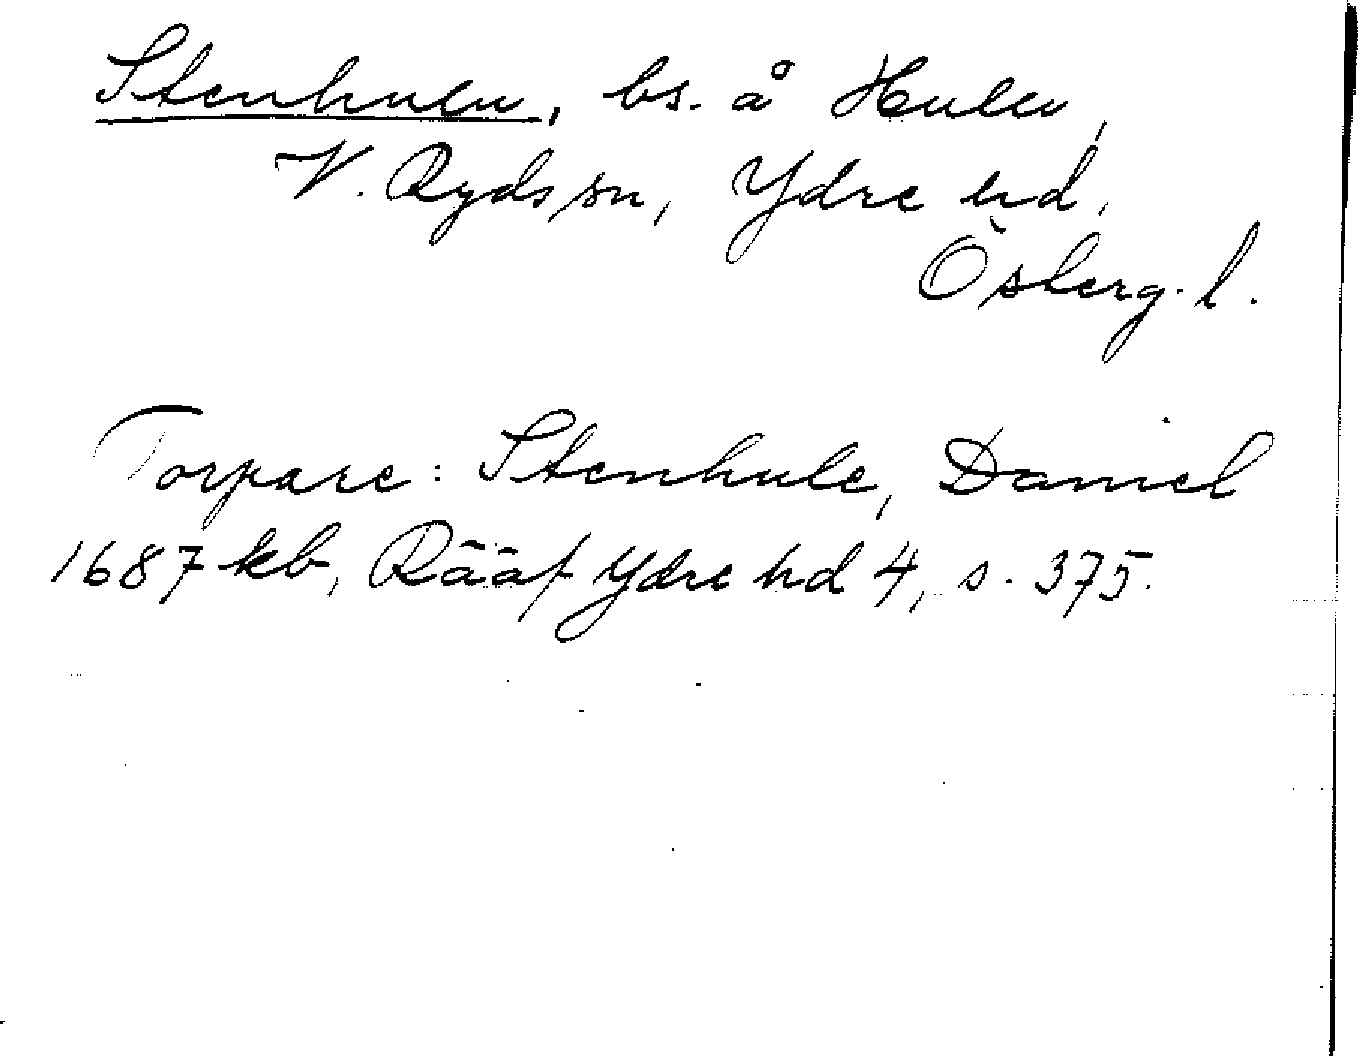 Stenhulu, bs. å Hulu,
V. Ryds sn, Ydre hd,
Österg. l.
Torpare: Stenhule, Daniel
1687 kb, Rääf Ydre hd 4, s. 375.